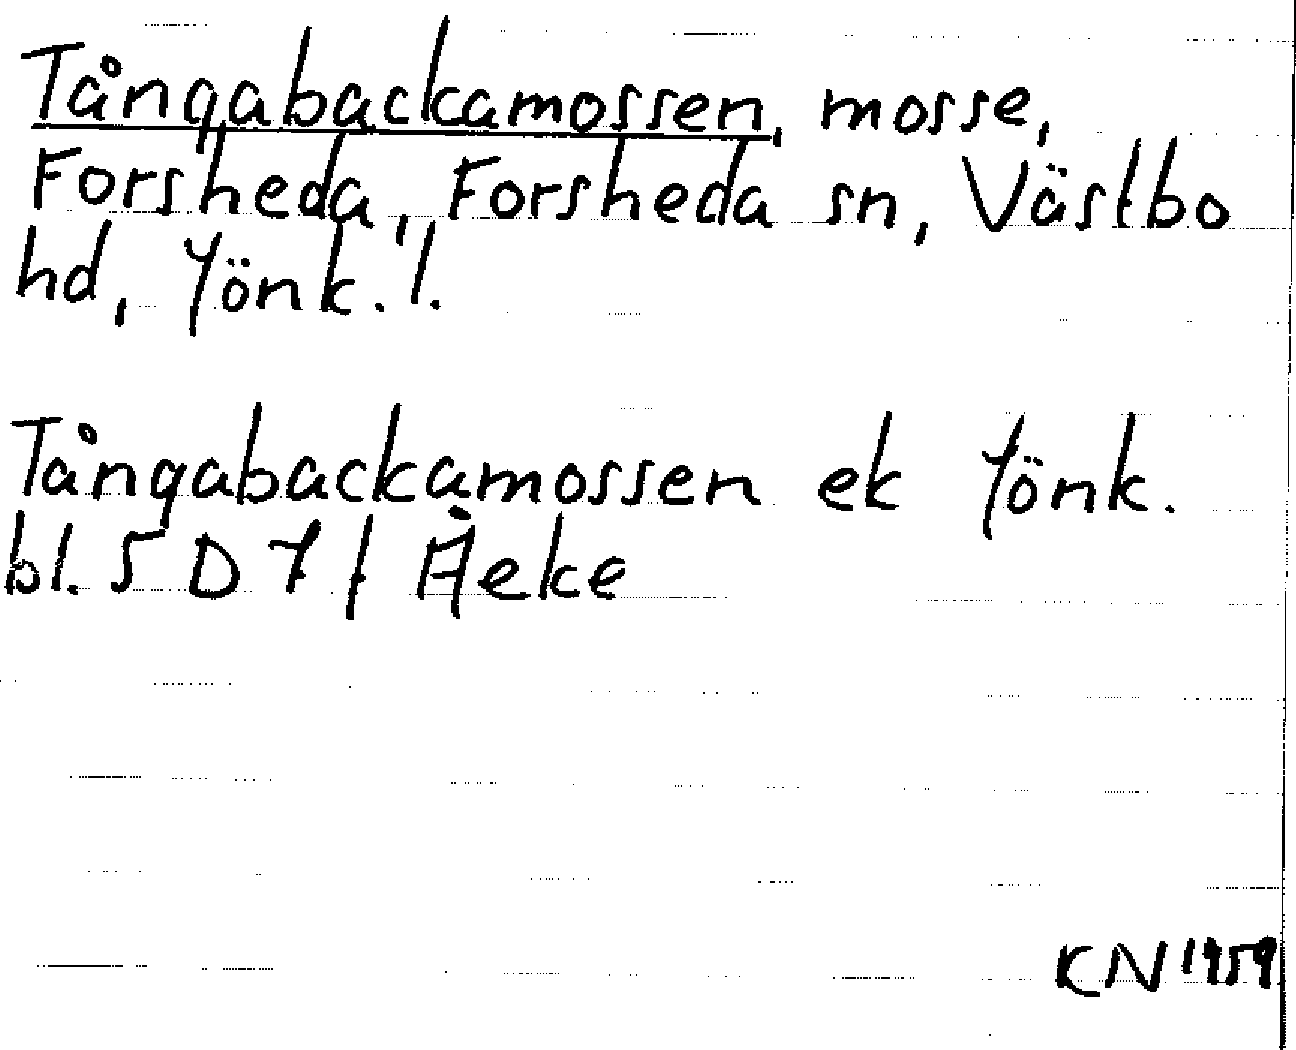 Tångabackamossen, mosse,
Forsheda, Forsheda sn, Västbo
hd, Jönk. l.
Tångabackamossen ek Jönk.
bl. 5 D 7 f Åeke
KN 1959